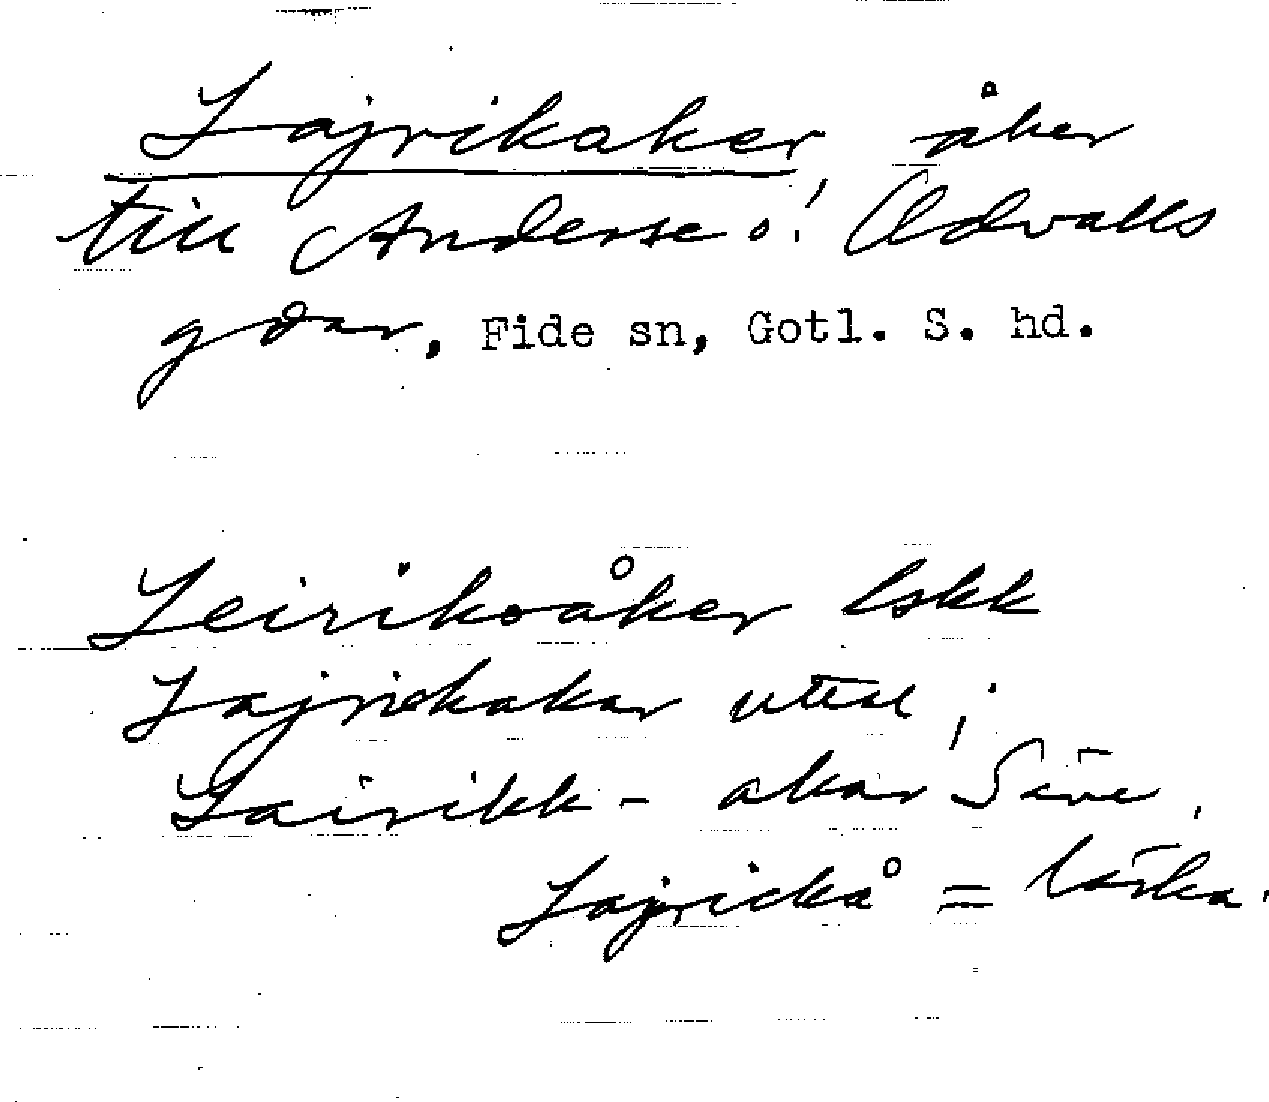 Lajrikaker, åker
till Anderse o. Odvalls
gdar, Fide sn, Gotl. S. hd.
Leirikoåker lskk
Lajrickakar uttal;
Lairikk- akar Säve.
Lajrickå = lärka.